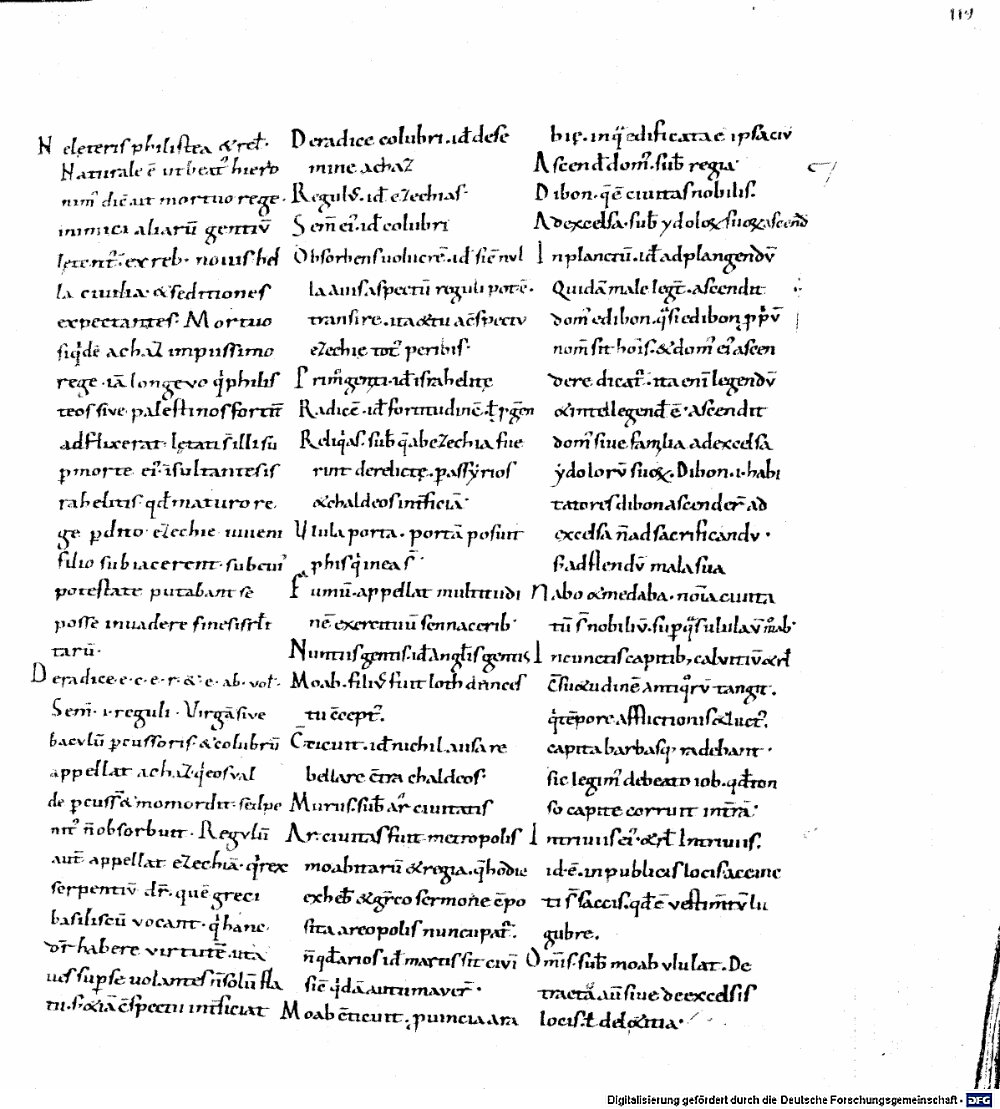 119
N eleteris philistea & rel̄.
Naturale ē ut beat' hiero
nim' dic̄ ait mortuo rege.
inimici aliarū gentiū
lętent'. ex reb. nouis bel
la ciuilia. & seditiones
expectantes. Mortuo
siq̄dē achaz impiissimo
rege. iā longevo q̄ philis
teos sive palestinos fortit̄
adflixerat. lętati s̄ illi sū
p morte ei'. īsultantes is
rahelitis. qd̄ maturo re
ge pdito. ezechie iuueni
filio subiacerent. sub cui'
potestate putabant se
posse inuadere fines isrl̄
tarū.
D eradice. e. c. e. r. & e. ab. vol̄.
Sem̄. i. reguli. Virgā sive
baculū pcussoris. & colubrū
appellat achaz. q̄ eos val
de pcuss̄ & momordit. sed pe
nit' n̄ obsorbuit. Regulū
aut̄ appellat ezechiā. q̄ rex
serpentiū dr̄. quē greci
basiliscū vocant. q̄ hanc
dr̄ habere virtutē. uta
ues sup se uolantes n̄ solū fla
tu. s; & iā c̄spectu int̄ficiat
D eradice colubri. id̄ de se
mine achaz
Regul'. id̄ ezechias.
Sem̄ ei'. id̄ colubri
Obsorbens uolucrē. id̄ sic̄ nul
la auis aspectū reguli pot̄ē.
transire. ita & tu ac̄spectu
ezechie tot' peribis.
Prim̄genti. id̄ israhelitę
Radicē. id̄ fortitudinē. ł p̱gen
Reliq̄as. sub̄ q̄ ab ezechia fue
rint derelictę. p assyrios
& chaldeos int̄ficiā.
Ulula porta. portā posuit
p his q̄ in ea s̄.
Fumū. appellat multitudi
nē exercituū sennacerib.
Nuntiis gentis. id̄ Angl̄is gentis
Moab. filiꝰ fuit loth de inces
tu c̄cept'.
C̄ticuit. id̄ nichil ausa re
bellare c̄tra chaldeos.
Murus. sub̄ ar ciuitatis
Ar. ciuitas fuit metropolis
moabitarū & regia. q̄ hodie
ex heb̄ & gr̄co sermone c̄po
sita areopolis nuncupat'.
n̄ qd̄ arios id̄ martis sit civi
sic̄ q̄dā autumaver̄.
Moab c̄ticuit. puincia ara
bię. in q̄ edificata ē ipsa civ
Ascend̄ dom'. sub̄ regia
Dibon. q̄ ē ciuitas nobilis.
Ad excelsa. sub̄ ydoloꝝ suoꝝ ascend̄
In planctū. id̄ ad plangendū
Quidā male leḡt. ascendit
dom' edibon. q̄si edibon ppū
nom̄ sit hoīs. & dom' ei' ascen
dere dicat'. ita enī legendū
& intellegend̄ ē. ascendit
dom' siue familia ad excelsa
ydolorū suoꝝ. Dibon. i. habi
tatores dibon ascender̄ ad
excelsa n̄ ad sacrificandū.
s; ad flendū mala sua
Nabo & medaba. noīa ciuita
tū s̄ nobiliū. sup q̄s ululaū moab
In cunctis capitib; caluitiū & rl̄
C̄suetudinē antiq̄rū tangit.
q̄ tēpore afflictionis & luct'.
capita barbasq; radebant.
sic legim' de beato iob. qd̄ ton
so capite corruit int̄rā.
In triuiis ei'. & rl̄ In triuiis.
id ē. in publicis locis accinc
ti s̄ saccis. qd̄ ē vestim̄tū lu
gubre.
Omīs. sub̄ moab ululat. De
tectā aū siue de excelsis
locis. ł de l&itia.
Digitalisierung gefördert durch die Deutsche Forschungsgemeinschaft - DFG